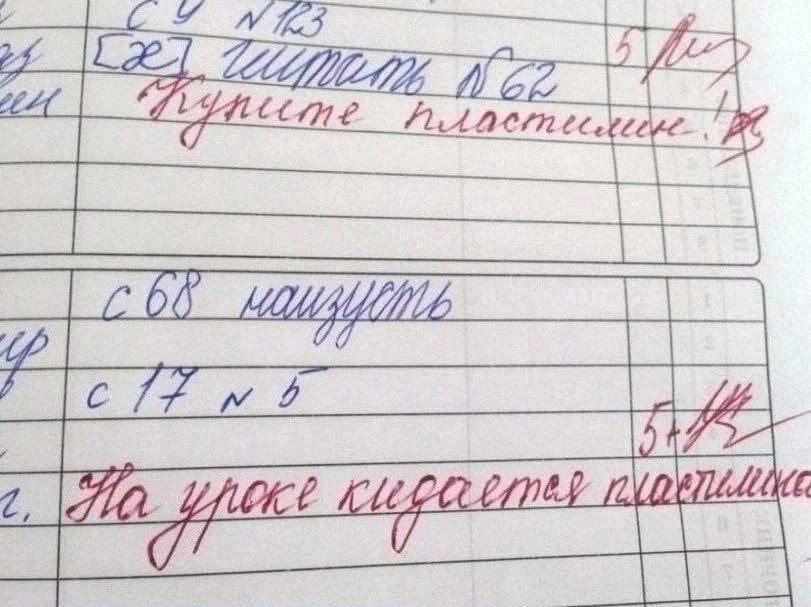 с 4 №123
[х] читать №62 5
ин Купите пластилин!
с 68 наизусть
с 17 № 5
5+
г. На уроке кидается пластилино